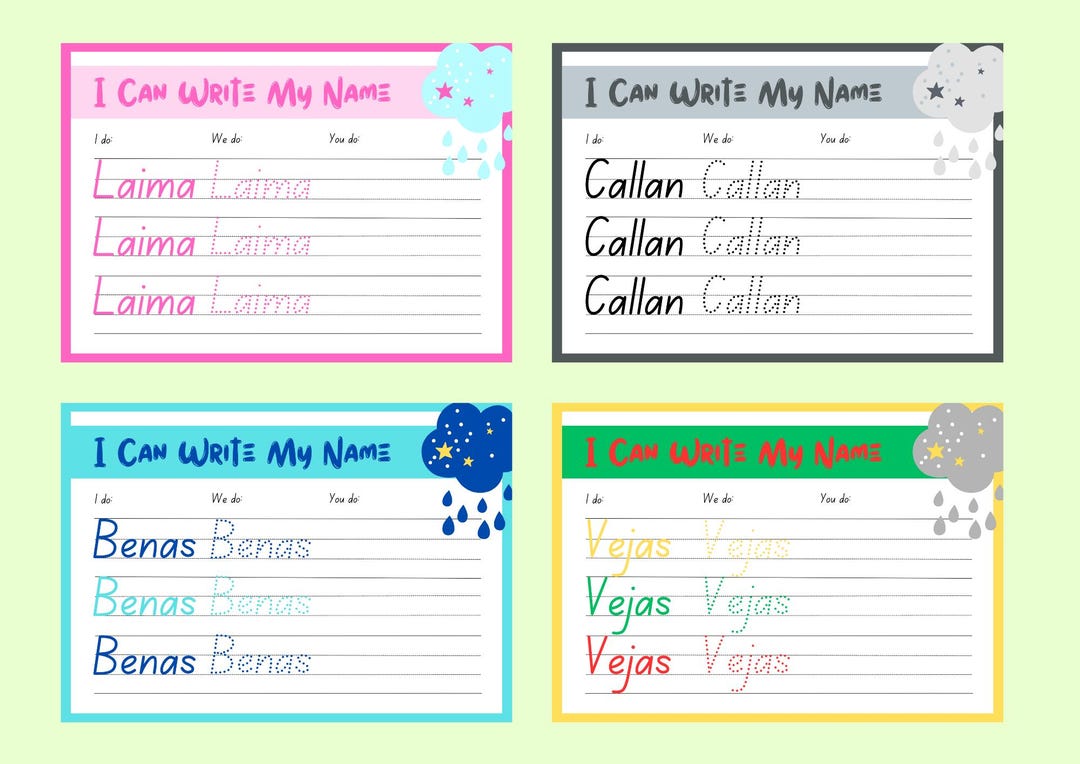 I Can Write My Name
I do: We do: You do:
Laima Laima
Laima Laima
Laima Laima
I Can Write My Name
I do: We do: You do:
Callan Callan
Callan Callan
Callan Callan
I Can Write My Name
I do: We do: You do:
Benas Benas
Benas Benas
Benas Benas
I Can Write My Name
I do: We do: You do:
Vejas Vejas
Vejas Vejas
Vejas Vejas